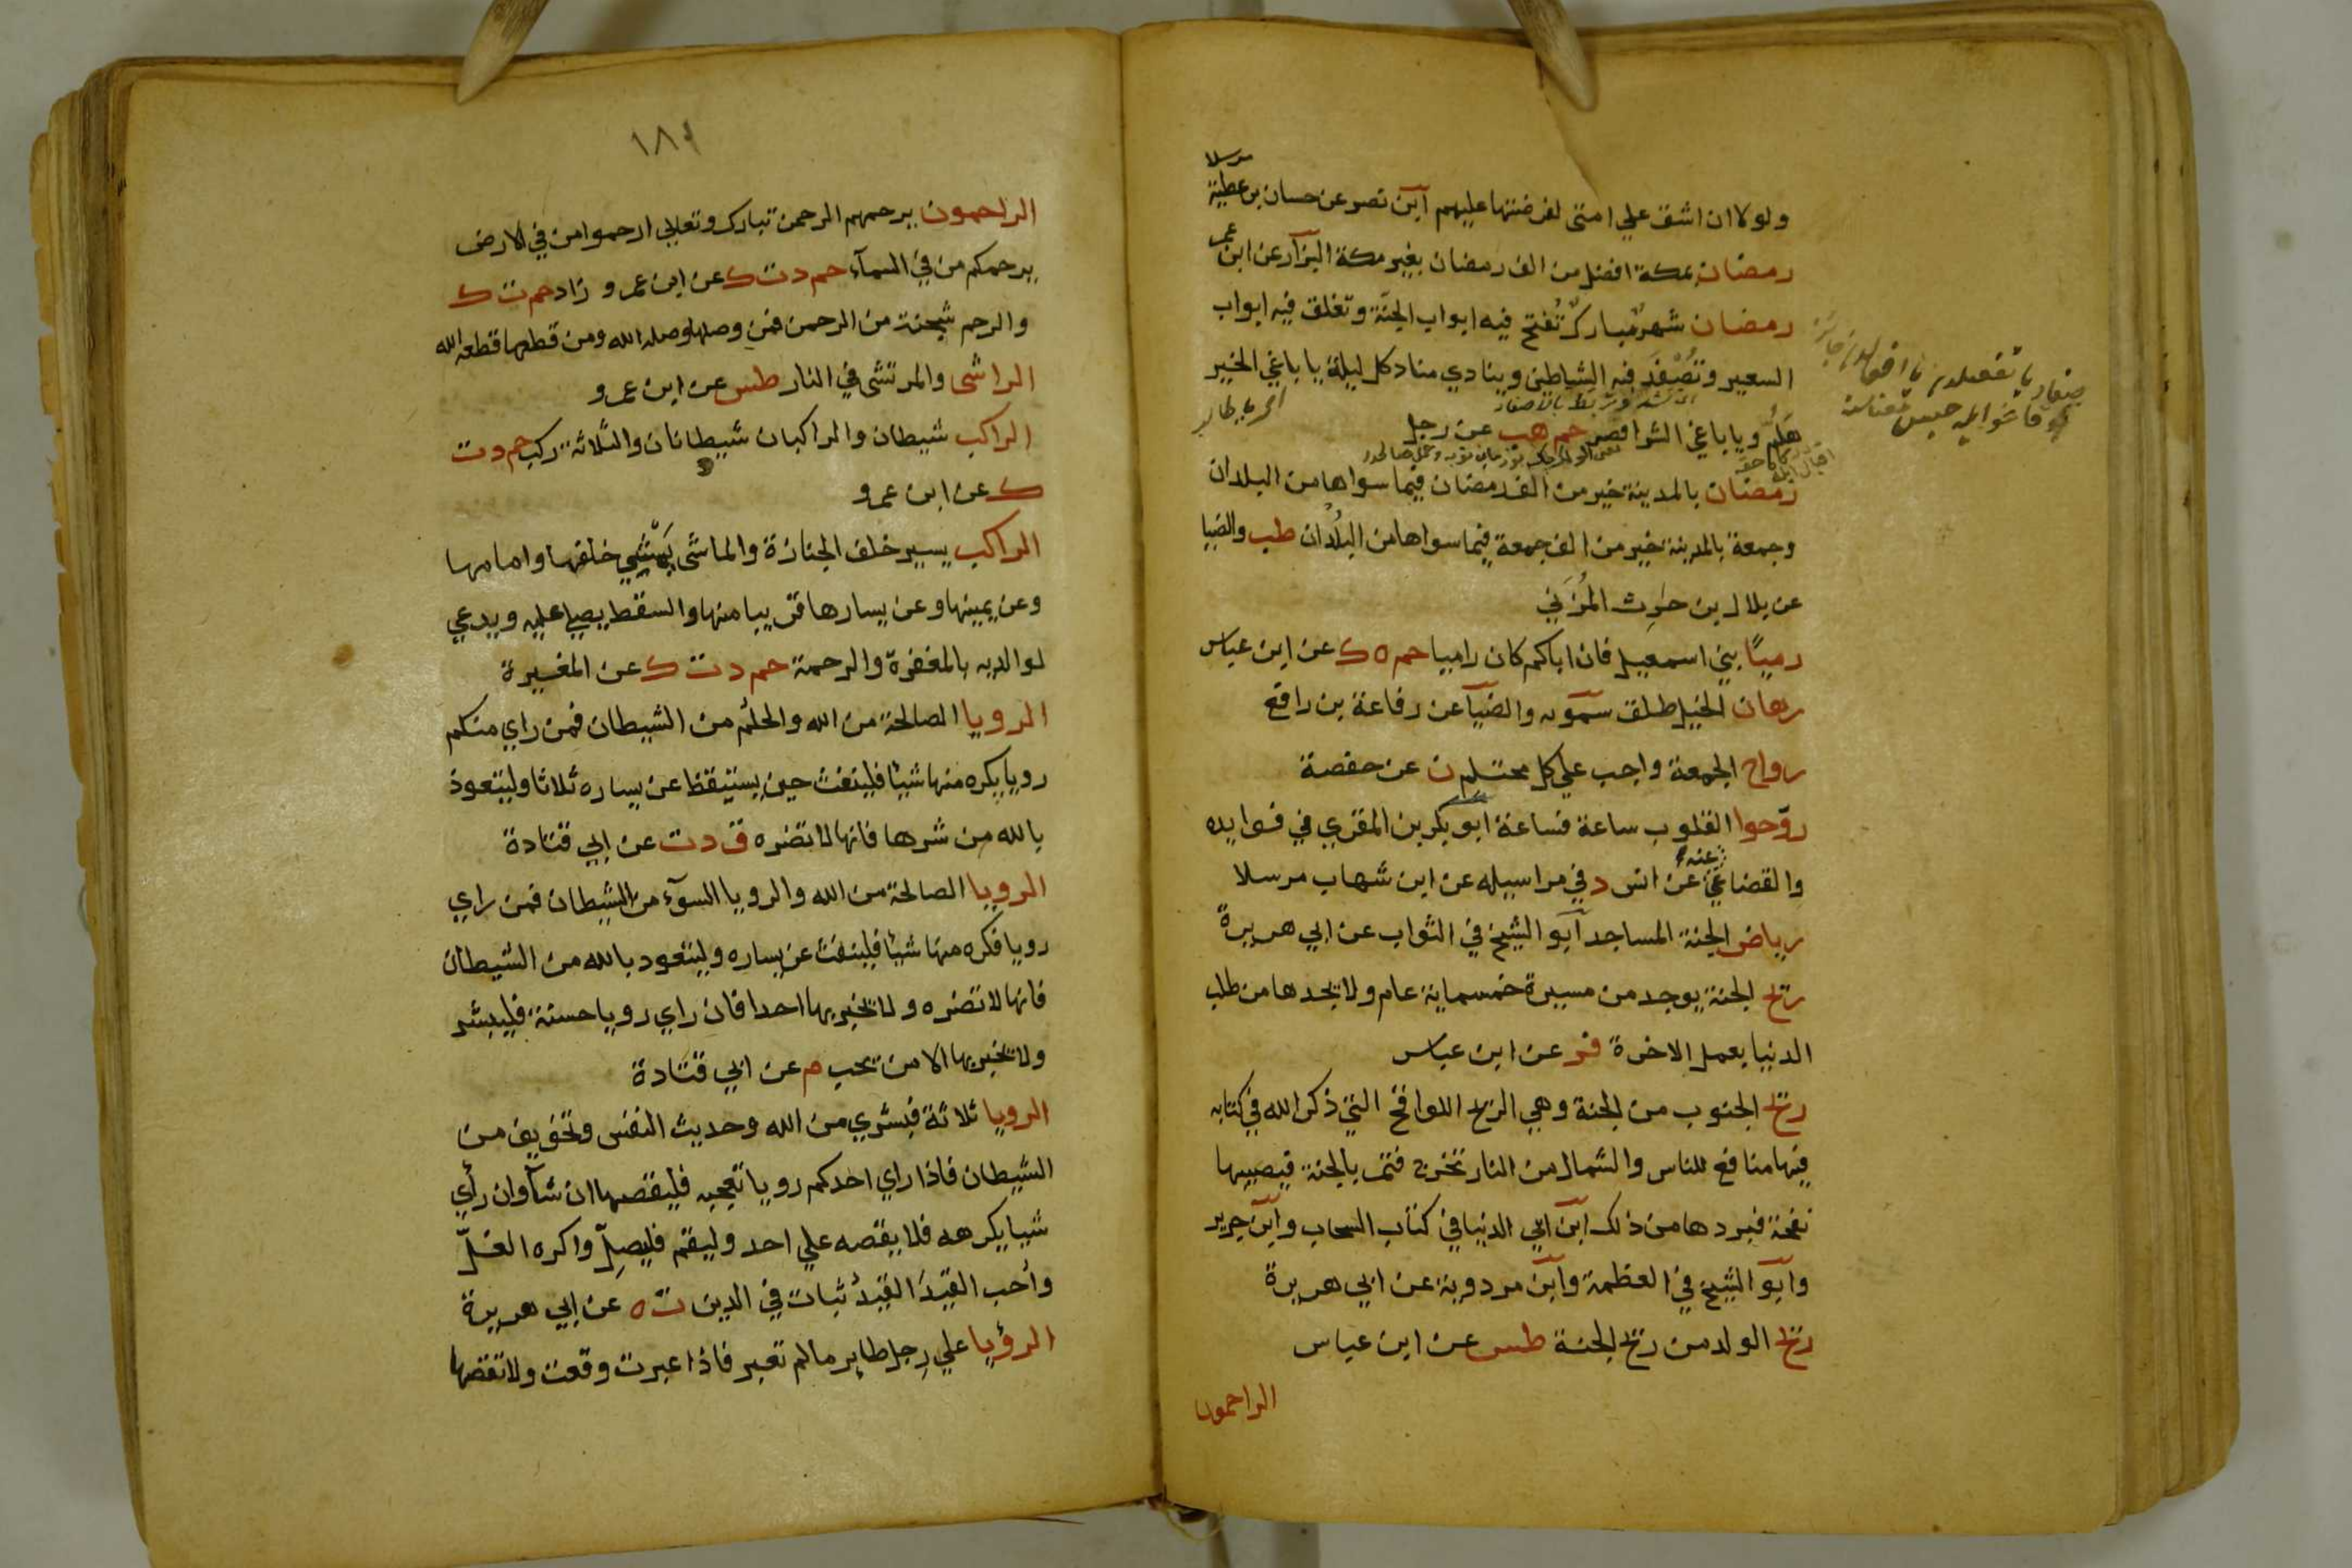 مرسلا
ولولا ان اشق علي امتى لفرضتها عليهم ابن نصر عن حسان بن عطية
رمضان بمكة افضل من الف رمضان بغير مكة البزار عن ابن عمر
رمضان شهر مبارك تُفتح فيه ابواب الجنّة وتغلق فيه ابواب
السعير وتُصْفَد فيه الشياطين وينادي مناد كل ليلة يا باغي الخير
هَلمُّ ويا باغي الشر اقصر حم هب عن رجل
رمضان بالمدينة خير من الف رمضان فيما سواها من البلدان
وجمعة بالمدينة خير من الف جمعة فيما سواها من البلدان طب والضيا
عن بلال بن حرث المُزَني
رميًا بني اسمعيل فان اباكم كان راميا حم ه ك عن ابن عباس
رهان الخيل طلق سمويه والضيآ عن رفاعة بن رافع
رواح الجمعة واجب علي كل محتلم ن عن حفصة
روّحوا القلوب ساعة فساعة ابو بكر بن المقري في فوايده
والقضاعي عنه عن انس د في مراسيله عن ابن شهاب مرسلا
رياض الجنة المساجد ابو الشيخ في الثواب عن ابي هريرة
ريح الجنة يوجد من مسيرة خمسماية عام ولا يجدها من طلب
الدنيا بعمل الاخرة فر عن ابن عباس
ريح الجنوب من الجنة وهي الريح اللواقح التي ذكر الله في كتابه
فيها منافع للناس والشمال من النار تخرج فتمر بالجنة فيصيبها
نفحة فبردها من ذلك ابن ابي الدنيا في كتاب السحاب وابن جرير
وابو الشيخ في العظمة وابن مردوية عن ابي هريرة
ريح الولد من ريح الجنة طس عن ابن عباس
الراحمون
١٨٩
الراحمون يرحمهم الرحمن تبارك وتعلي ارحموا من في الارض
يرحمكم من في السمآء حم د ت ك عن ابن عمرو زاد حم ت ك
والرحم شجنة من الرحمن فمن وصلها وصله الله ومن قطعها قطعه الله
الراشى والمرتشى في النار طس عن ابن عمرو
الراكب شيطان والراكبان شيطانان والثلاثة ركب حم د ت
ك عن ابن عمرو
الراكب يسير خلف الجنازة والماشى يَمْشِي خلفها وامامها
وعن يمينها وعن يسارها قريبا منها والسقط يصلي عليه ويدعي
لوالديه بالمغفرة والرحمة حم د ت ك عن المغيرة
الرويا الصالحة من الله والحلم من الشيطان فمن راي منكم
رويا يكره منها شيئا فلينفث حين يستيقظ عن يساره ثلاثا وليتعوذ
بالله من شرها فانها لا تضره ق د ت عن ابي قتادة
الرويا الصالحة من الله والرويا السوٓء من الشيطان فمن راي
رويا فكره منها شيئا فلينفث عن يساره وليتعوذ بالله من الشيطان
فانها لا تضره ولا يخبر بها احدا فان راي رويا حسنة فليبشر
ولا يخبر بها الا من يحب م عن ابي قتادة
الرويا ثلاثة فبشري من الله وحديث النفس وتخويف من
الشيطان فاذا راي احدكم رويا تعجبه فليقصها ان شآ وان رأي
شيا يكرهه فلا يقصه علي احد وليقم فليصلِّ واكره الغلّ
وأحب القيدَ القيدُ ثبات في الدين ت ه عن ابي هريرة
الرؤيا علي رِجل طاير ما لم تعبر فاذا عبرت وقعت ولا تقصها